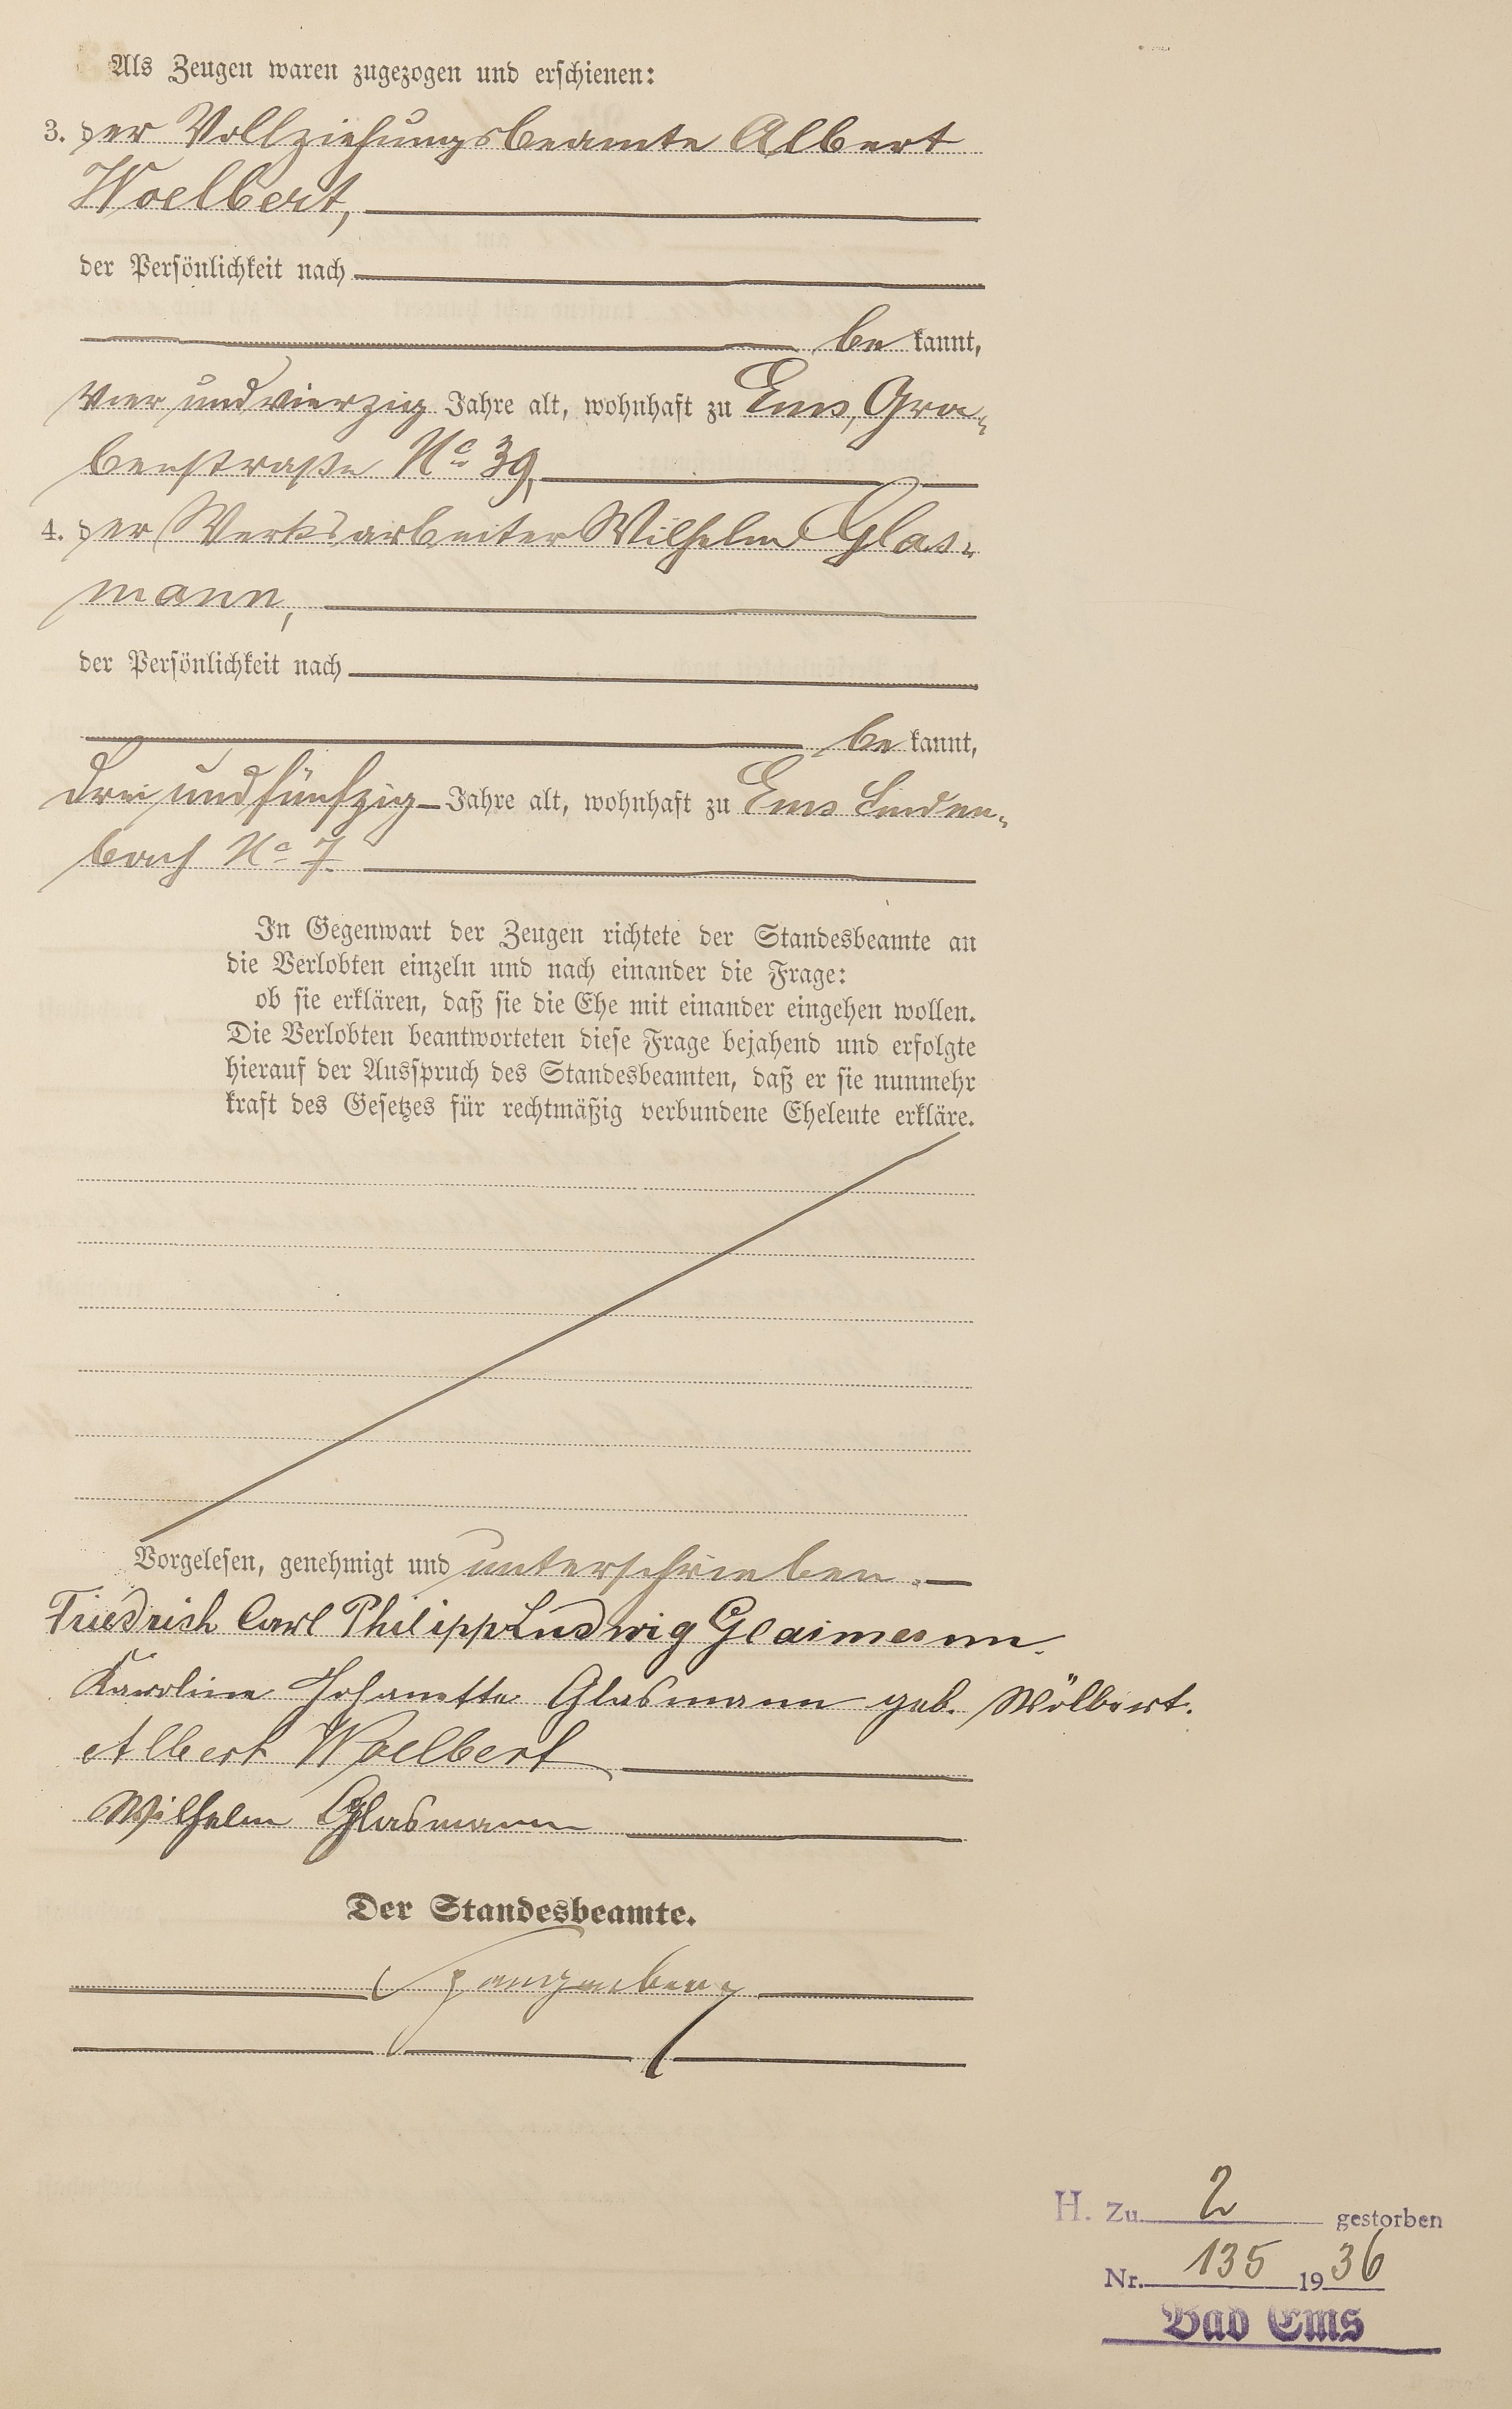 Als Zeugen waren zugezogen und erschienen:
3. der Vollziehungsbeamte Albert
Woelbert,
der Persönlichkeit nach
be kannt,
vier und vierzig Jahre alt, wohnhaft zu Ems, Gra-
benstraße No 39,
4. der Werksarbeiter Wilhelm Glas-
mann,
der Persönlichkeit nach
be kannt,
drei und fünfzig Jahre alt, wohnhaft zu Ems Linden-
bach No 7.
In Gegenwart der Zeugen richtete der Standesbeamte an
die Verlobten einzeln und nach einander die Frage:
ob sie erklären, daß sie die Ehe mit einander eingehen wollen.
Die Verlobten beantworteten diese Frage bejahend und erfolgte
hierauf der Ausspruch des Standesbeamten, daß er sie nunmehr
kraft des Gesetzes für rechtmäßig verbundene Eheleute erkläre.
Vorgelesen, genehmigt und unterschrieben.
Friedrich Carl Philipp Ludwig Glasmann.
Karoline Johanette Glasmann geb. Wölbert.
Albert Woelbert
Wilhelm Glasmann
Der Standesbeamte.
H. Zu 2 gestorben
Nr. 135 1936
Bad Ems